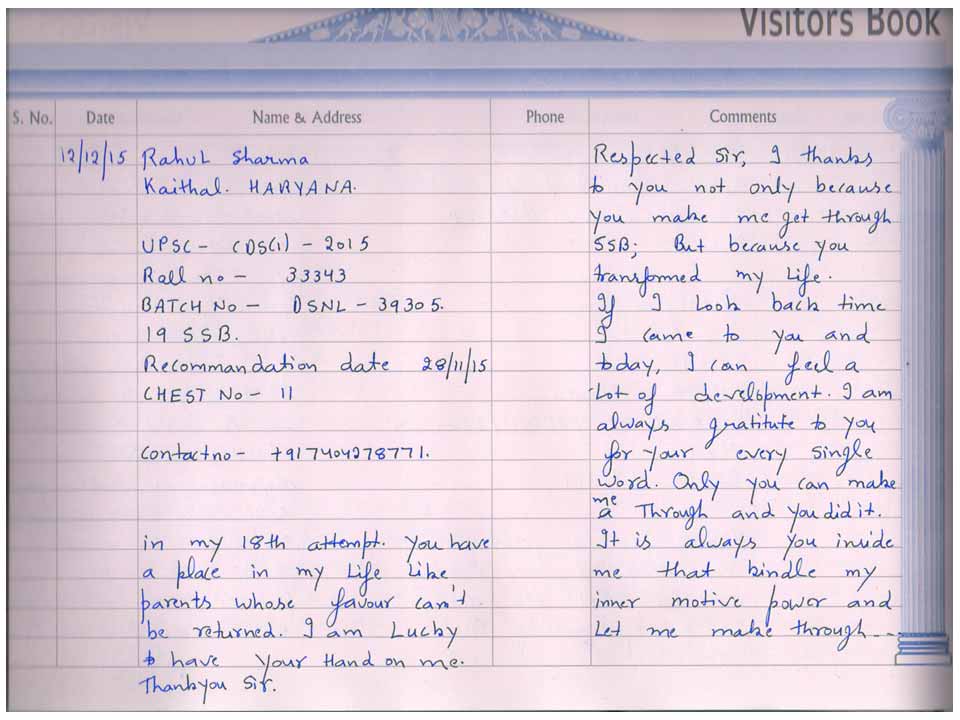 Visitors Book
S. No. Date Name & Address Phone Comments
12/12/15 Rahul Sharma
Kaithal. HARYANA.
UPSC - CDS(1) - 2015
Roll no - 33343
BATCH No - DSNL - 39305.
19 SSB.
Recommandation date 28/11/15
CHEST No - 11
Contact no - +917404278771.
Respected Sir, I thanks
to you not only because
you make me get through
SSB; But because you
transformed my Life.
If I Look back time
I came to you and
today, I can feel a
Lot of development. I am
always gratitute to you
for your every single
word. Only you can make
me
a Through and you did it.
It is always you inside
me that kindle my
inner motive power and
Let me make through ---
in my 18th attempt. You have
a place in my Life Like
parents whose favour can't
be returned. I am Lucky
to have your Hand on me.
Thankyou Sir.